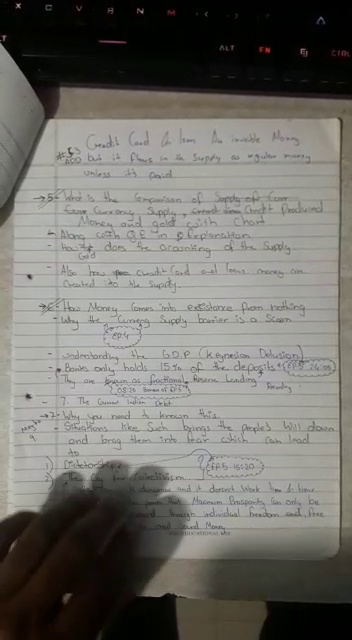 X C V B N M
ALT FN CTRL
#53 Credit Card & loan An invisible Money
ADD but it flows in the Supply as regular money
unless it's paid
→5. What is the Comparison of Supply of
Currency Supply, Credit Produced
Money and gold with Chart
- Along with Q.E in Explanation
- How does the of the Supply
Gold
- Also how credit Card and loans money are
Created in to the Supply.
How Money Comes into existence from nothing
- Why the Currency Supply barrier is a Scam
EP.4
- understanding the G.D.P (Keynesian Delusion)
- Banks only holds 15% of the deposits EP.5 26:05
- They are known as fractional Reserve Lending
- 7. The Current Indian Debt
→7. Why you need to known this.
Situations like Such brings the people's Will down
and bring them into fear which can lead
to
1) Dictatorship
EP.5 15:20
2) The Cry for
and it doesn't Work time & time
that Maximum Prosperity Can only be
through individual freedom and free
and Sound Money